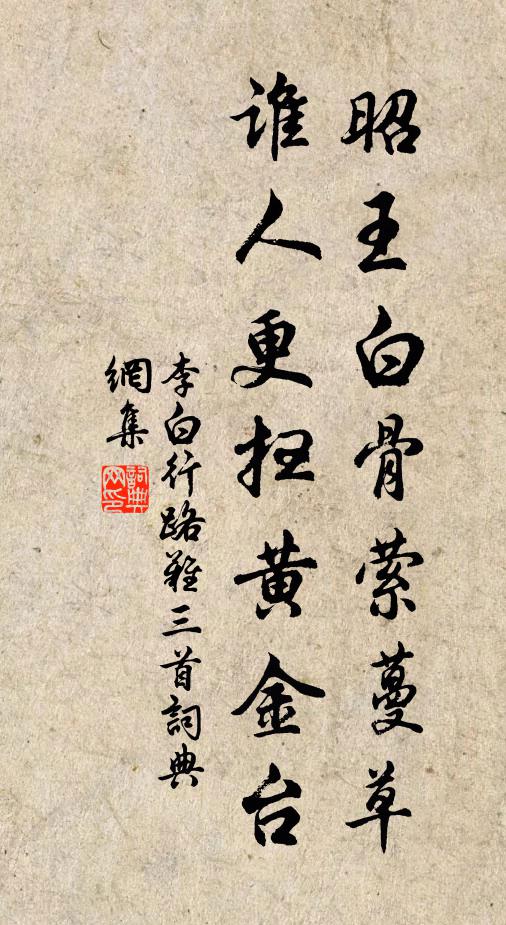 昭王白骨萦蔓草
谁人更扫黄金台
李白行路難三首詞典
網集
詞典
网印